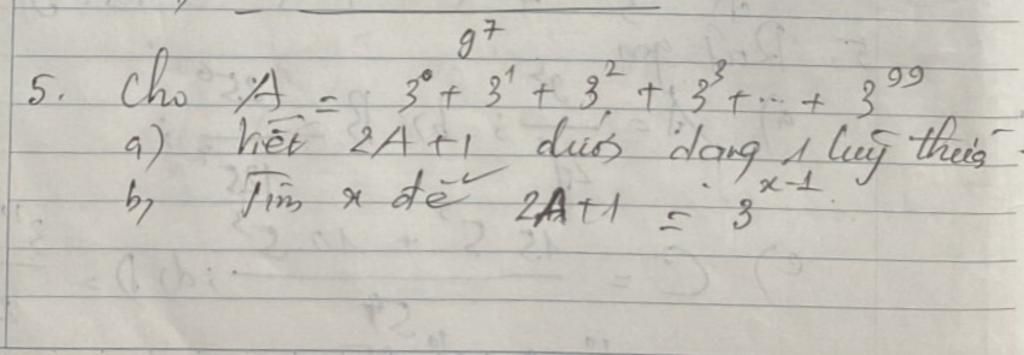 9⁷
5. Cho A = 3⁰ + 3¹ + 3² + 3³ + ... + 3⁹⁹
a) Viết 2A+1 dưới dạng 1 luỹ thừa
b, Tìm x để 2A+1 = 3ˣ⁻¹